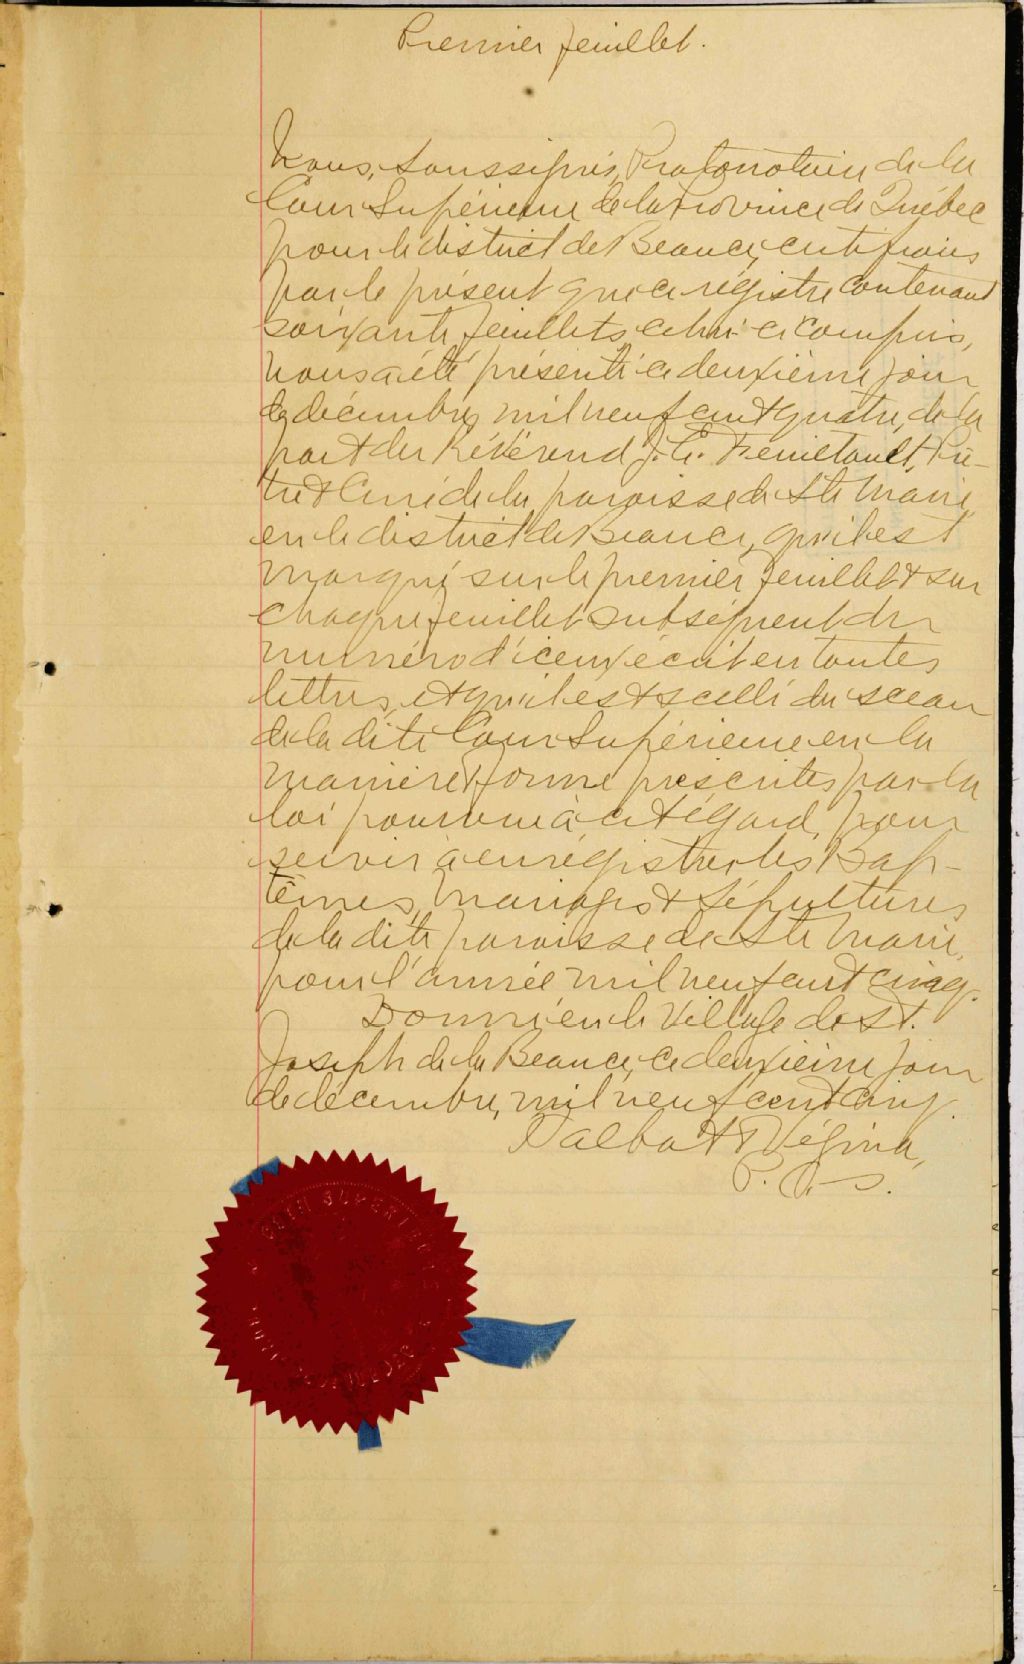 Premier feuillet.
Nous, soussignés, Protonotaire de la
Cour Supérieure de la Province de Québec
pour le district de Beauce, certifions
par le présent que ce régistre contenant
soixante feuillets, celui-ci compris,
nous a été présenté ce deuxième jour
de décembre, mil neuf cent quatre, de la
part du Révérend J. E. Feuiltault, Prê-
tre & Curé de la paroisse de Ste Marie,
en le district de Beauce, qu'il est
marqué sur le premier feuillet & sur
chaque feuillet subséquent du
numéro d'iceux écrit en toutes
lettres, et qu'il est scellé du sceau
de la dite Cour Supérieure en la
manière & forme prescrites par la
loi pourvue à cet égard, pour
servir à enrégistrer les Bap-
têmes, Mariages & Sépultures
de la dite paroisse de Ste Marie,
pour l'année mil neuf cent cinq.
Donné en le Village de St.
Joseph de la Beauce, ce deuxième jour
de décembre, mil neuf cent cinq.
Talbot & Vézina,
P. C. S.
COUR SUPERIEURE